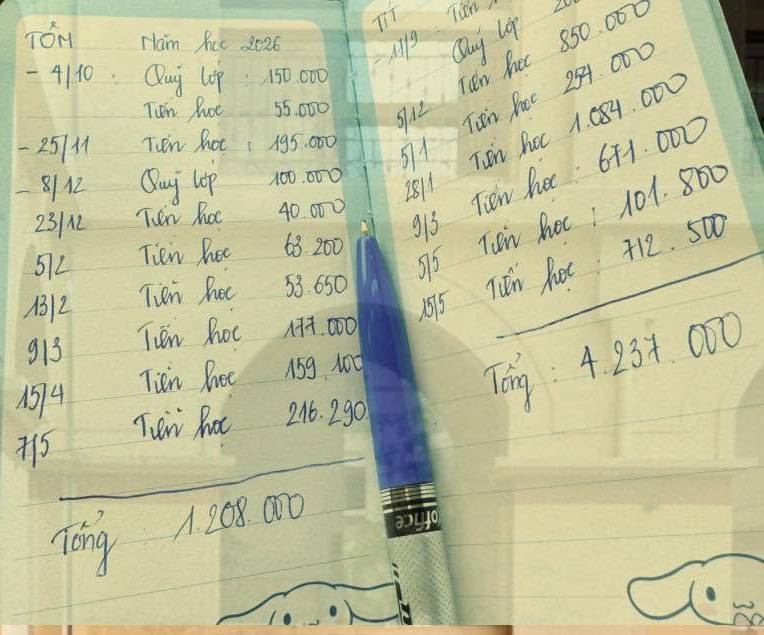 TÔM Năm học 2026
- 4/10 : Quỹ lớp : 150.000
Tiền học 55.000
- 25/11 Tiền học : 195.000
- 8/12 Quỹ lớp 100.000
23/12 Tiền học 40.000
5/2 Tiền học 63.200
13/2 Tiền học 53.650
9/3 Tiền học 177.000
15/4 Tiền học 159.100
7/5 Tiền học 216.290
Tổng : 1.208.000
TÍT
- 11/9 : Tiền
Quỹ lớp 20
5/12 Tiền học 850.000
5/1 Tiền học 254.000
28/1 Tiền học 1.084.000
9/3 Tiền học : 671.000
5/5 Tiền học : 101.800
15/5 Tiền học : 712.500
Tổng : 4.237.000
office